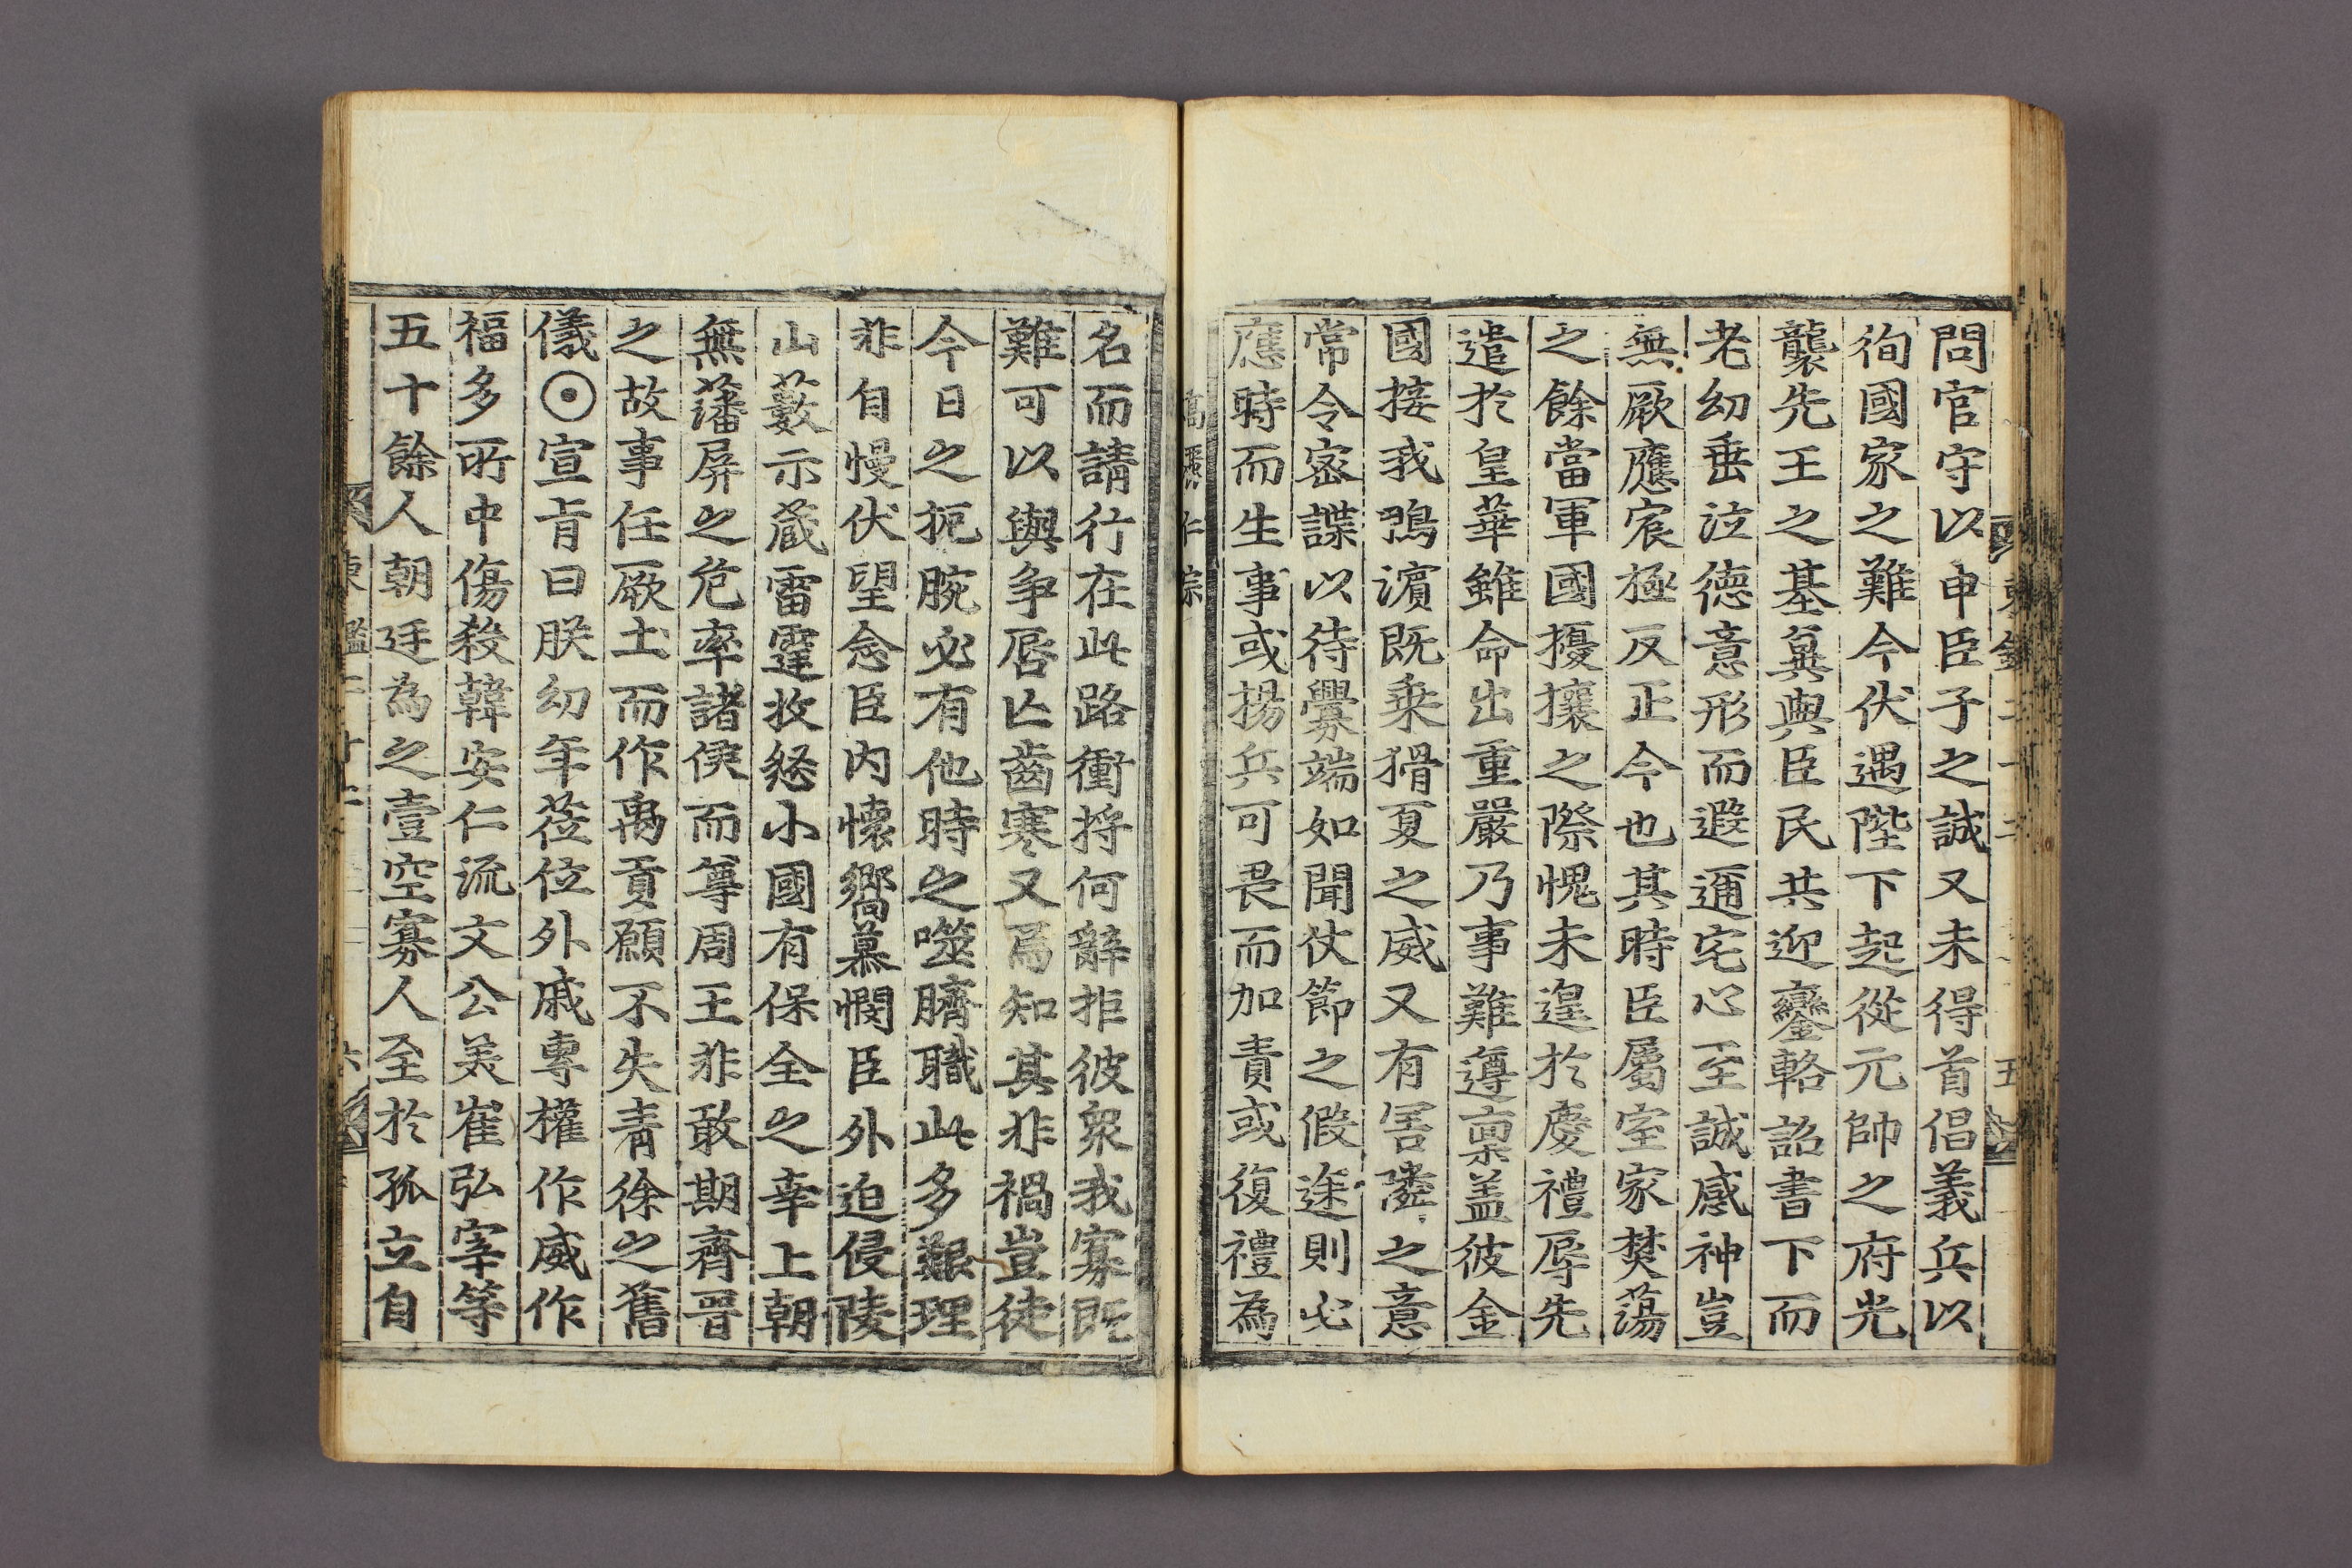 問官守以申臣子之誠又未得首倡義兵以
徇國家之難今伏遇陛下起從元帥之府光
襲先王之基冀與臣民共迎鑾輅詔書下而
老幼垂泣德意形而遐邇宅心至誠感神豈
無厥應宸極反正今也其時臣屬室家焚蕩
之餘當軍國擾攘之際愧未遑於慶禮辱先
遣於皇華雖命出重嚴乃事難遵稟盖彼金
國接我鴨濵既乗猾夏之威又有害隣之意
常令宻諜以待釁端如聞仗節之假途則必
應時而生事或揚兵可畏而加責或復禮為
高麗仁宗
名而請行在此路衝将何辭拒彼衆我寡既
難可以與争唇亾齒寒又焉知其非禍豈徒
今日之扼腕必有他時之噬臍職此多艱理
非自慢伏望念臣内懷嚮慕憫臣外迫侵陵
山藪示蔵雷霆收怒小國有保全之幸上朝
無藩屏之危率諸侯而尊周王非敢期齊晋
之故事任厥土而作禹貢願不失青徐之舊
儀⊙宣旨曰朕幼年莅位外戚專權作威作
福多所中傷殺韓安仁流文公美崔弘宰等
五十餘人朝廷為之壹空寡人至於孤立自
東鑑二十二
六